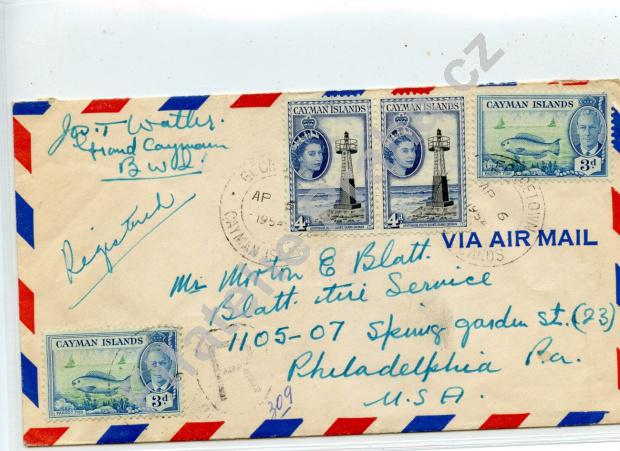 Jos. T Watler.
Grand Cayman
B W I.
Registered
CAYMAN ISLANDS
4d
CAYMAN ISLANDS
4d
CAYMAN ISLANDS
3d
AP 6
1954
CAYMAN
AP 6
1954
GEORGETOWN
ISLANDS
VIA AIR MAIL
Mr Morton E Blatt.
Blatt tire Service
1105-07 Spring garden st. (23)
Philadelphia Pa.
U.S.A.
CAYMAN ISLANDS
PARROT FISH
3d
309